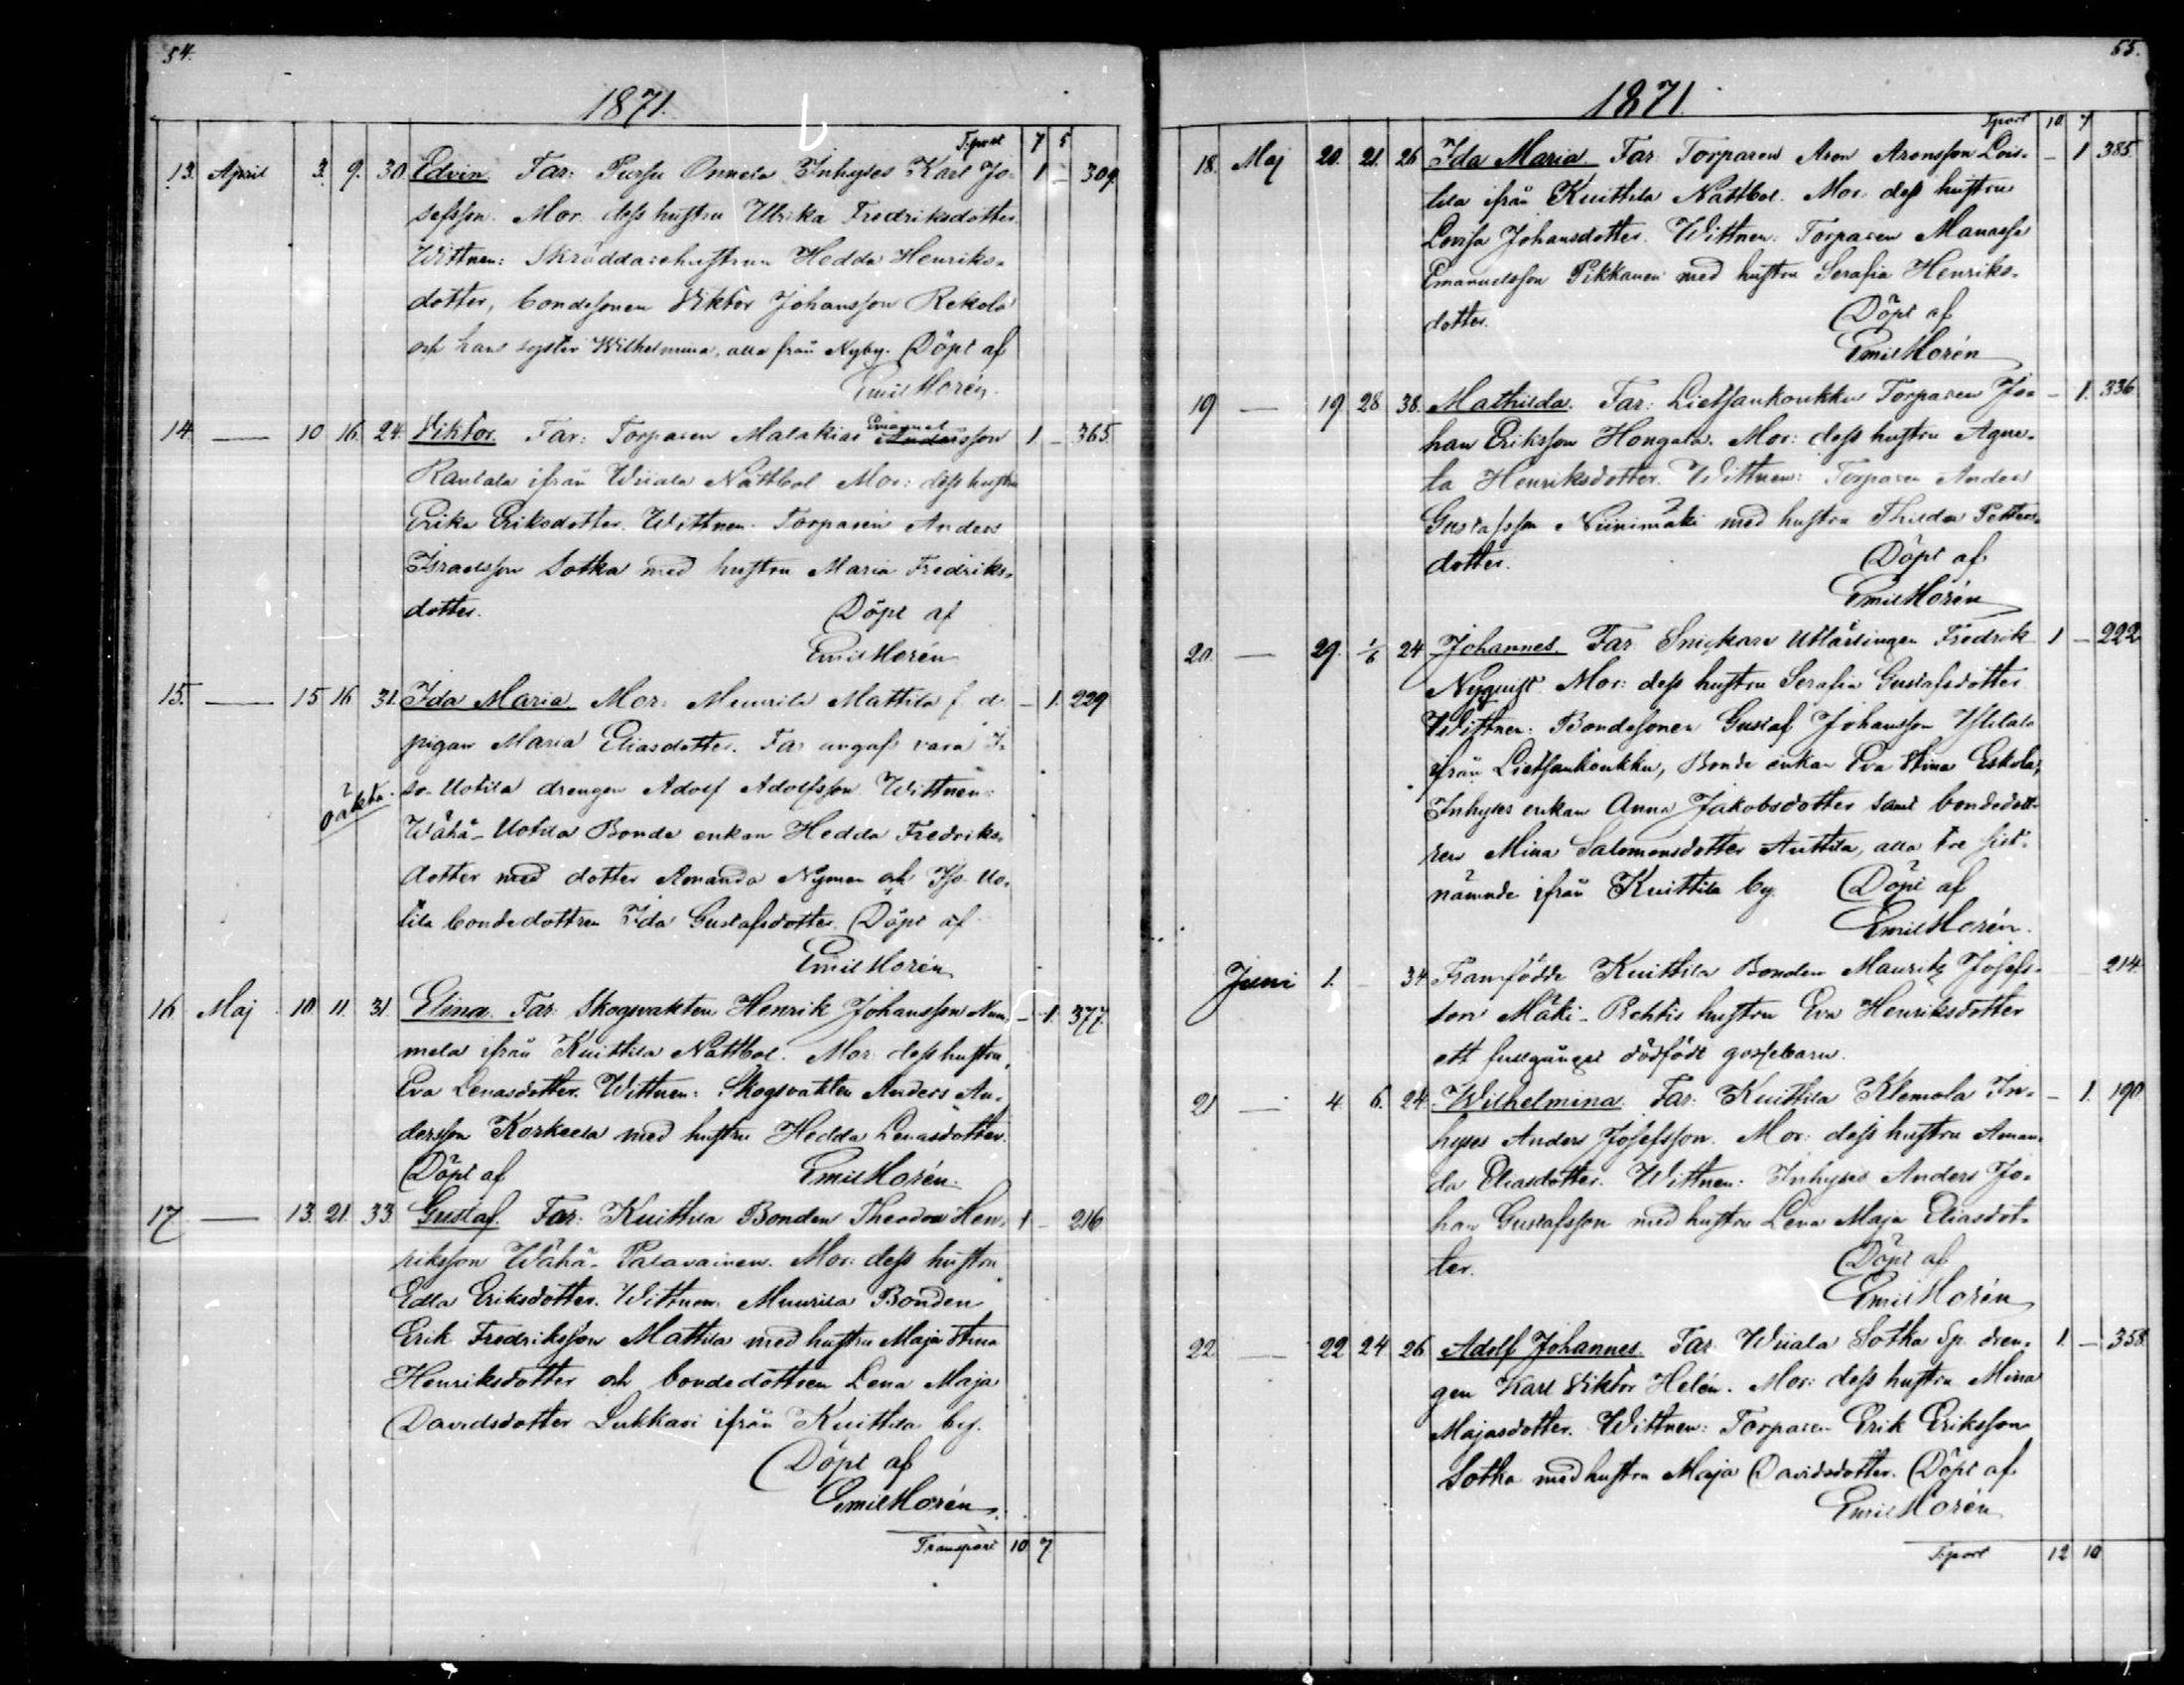 54.
1871.
Tsport 7 5
13. April 3. 9. 30. Edvin. Far: Pursu Onnela Inhyses Karl Jo- 1 - 309.
sefsson. Mor: dess hustru Ulrika Fredriksdotter.
Wittnen: Skräddarehustrun Hedda Henriks-
dotter, bondesonen Viktor Johansson Rekola
och hans syster Wilhelmina, alla från Nyby. Döpt af
Emil Horén.
14. — 10 16. 24. Viktor. Far: Torparen Malakias Emanuelsson 1 - 365.
Rantala ifrån Wiiala Nättbol Mor: dess hustru
Erika Eriksdotter. Wittnen. Torparen Anders
Israelsson Sotka med hustru Maria Fredriks-
dotter. Döpt af
Emil Horén
15. — 15 16 31. Ida Maria. Mor: Muurila Mattila f. d. - 1. 229
pigan Maria Eliasdotter. Far angafs vara I-
oäkta. so-Uotila drengen Adolf Adolfsson. Wittnen:
Wähä-Uotila Bonde enkan Hedda Fredriks-
dotter med dotter Amanda Nyman och Iso-Uo-
tila bondedottren Ida Gustafsdotter. Döpt af
Emil Horén
16. Maj 10. 11. 31. Elina. Far: Skogvakten Henrik Johansson Num- - 1. 377.
mela ifrån Kuittila Nättbol. Mor: dess hustru
Eva Lenasdotter. Wittnen: Skogsvakten Anders An-
dersson Korkeela med hustru Hedda Lenasdotter.
Döpt af Emil Horén.
17 — 13. 21. 33. Gustaf. Far: Kuittila Bonden Theodor Hen- 1 - 216
riksson Wähä-Palavainen. Mor: dess hustru
Edla Eriksdotter. Wittnen. Muurila Bonden
Erik Fredriksson Mattila med hustru Maja Stina
Henriksdotter och bondedottren Lena Maja
Davidsdotter Lukkari ifrån Kuittila by.
Döpt af
Emil Horén.
Transport 10 7
55.
1871.
Tsport 10 7
18. Maj 20. 21. 26 Ida Maria Far: Torparen Aron Aronsson Lois- - 1 385.
tila ifrån Kuittila Nättbol. Mor: dess hustru
Lovisa Johansdotter. Wittnen: Torparen Manasse
Emanuelsson Pikkanen med hustru Serafia Henriks-
dotter. Döpt af
Emil Horén
19 — 19. 28. 38. Mathilda. Far: Lietsankoukku Torparen Jo- - 1. 336
han Eriksson Hongala. Mor: dess hustru Agne-
ta Henriksdotter. Wittnen: Torparen Anders
Gustafsson Niinimäki med hustru Thilda Petters-
dotter. Döpt af
Emil Horén
20. — 29. 1/6 24 Johannes. Far: Snickare Utlärlingen Fredrik 1 - 222
Nyquist. Mor: dess hustru Serafia Gustafsdotter.
Wittnen: Bondesonen Gustaf Johansson
ifrån Lietsankoukku, Bonde enkan Eva Stina Eskola,
Inhyses enkan Anna Jakobsdotter samt bondedott-
ren Mina Salomonsdotter Anttila, alla tre sist-
nämnde ifrån Kuittila by. Döpt af
Emil Horén.
Juni 1. - 34 Framfödde Kuittila Bonden Mauritz Josefs- 214.
son Mäki-Rehtis hustru Eva Henriksdotter
ett fullgånget dödfödt gossebarn.
21 — 4. 6. 24. Wilhelmina. Far: Kuittila Klemola In- - 1. 190
hyses Anders Josefsson. Mor: dess hustru Aman-
da Eliasdotter. Wittnen: Inhyses Anders Jo-
han Gustafsson med hustru Lena Maja Eliasdot-
ter. Döpt af
Emil Horén
22 — 22 24 26. Adolf Johannes. Far: Wiiala Sotka Sp. dren- 1. - 358
gen Karl Viktor Helén. Mor: dess hustru Mina
Majasdotter. Wittnen: Torparen Erik Eriksson
Sotka med hustru Maja Davidsdotter. Döpt af
Emil Horén
Tsport 12 10